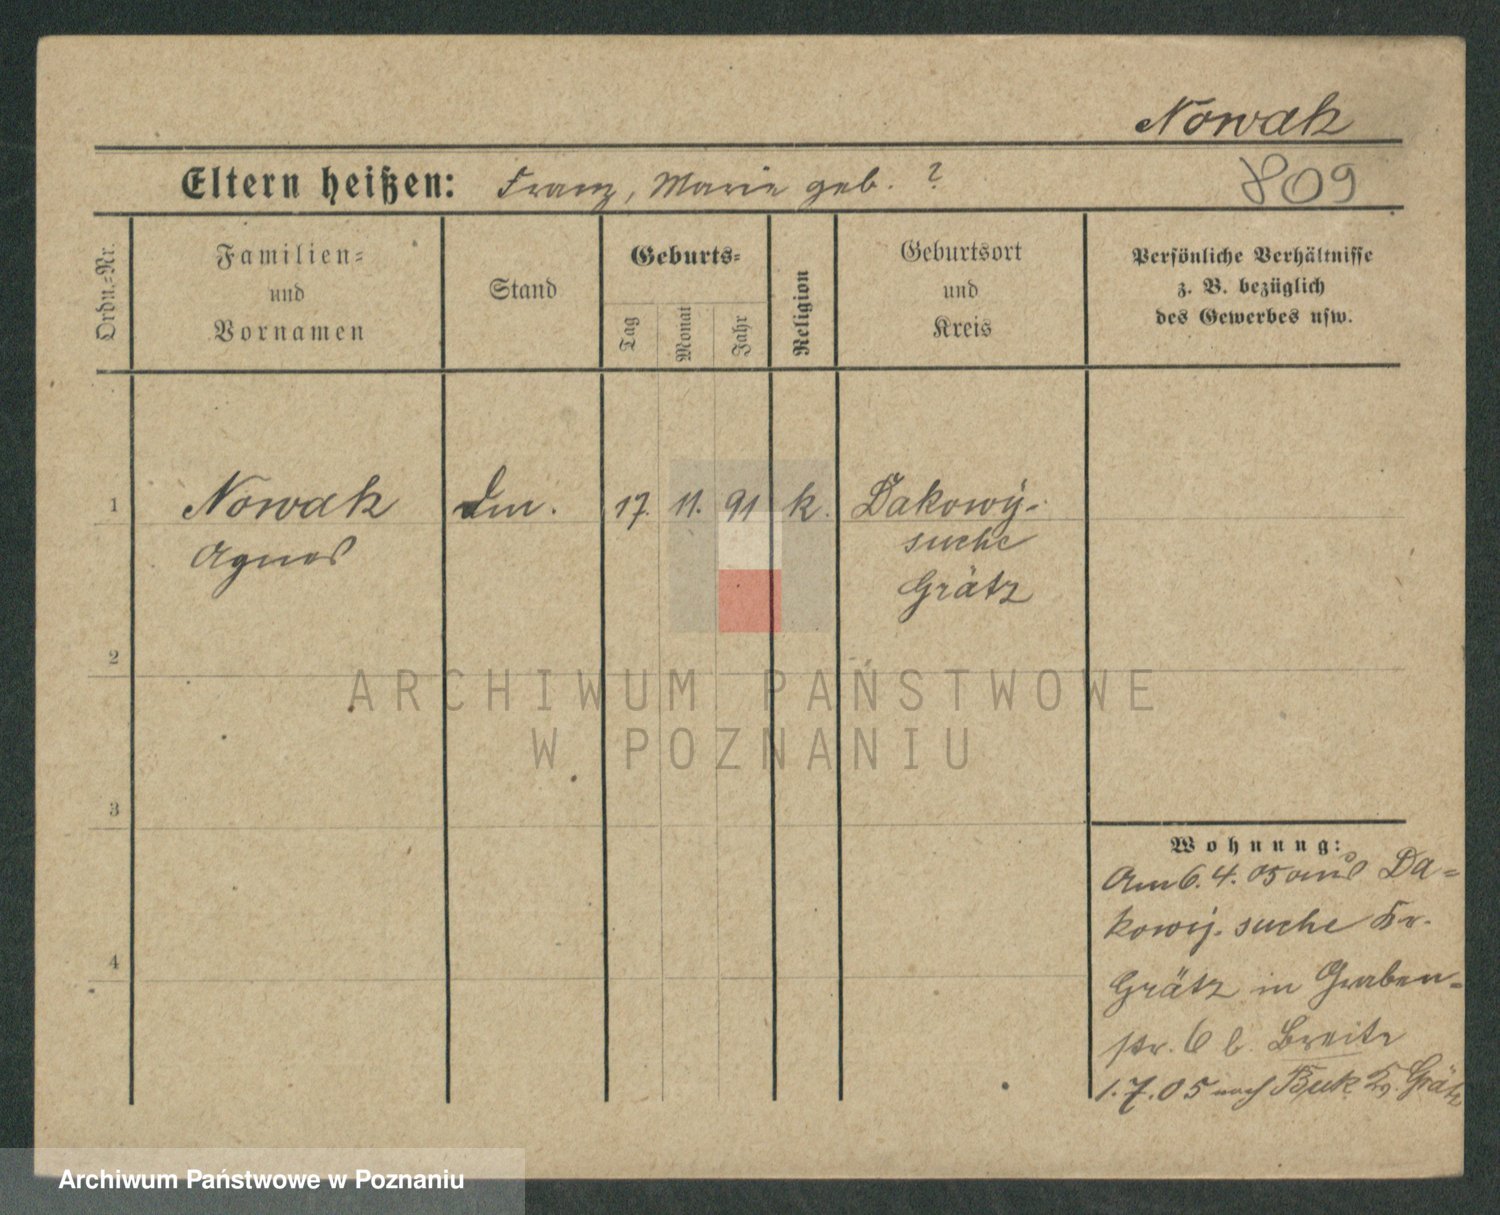 Nowak
Eltern heißen: Franz, Marie geb. ?
809
Ordn.-Nr.
Familien-
und
Vornamen
Stand
Geburts-
Tag
Monat
Jahr
Religion
Geburtsort
und
Kreis
Persönliche Verhältnisse
z. B. bezüglich
des Gewerbes usw.
1 Nowak 17. 11. 91 k. Dakowy-
Agnes suche
Grätz
2
ARCHIWUM PAŃSTWOWE
W POZNANIU
3
Wohnung:
Am 6. 4. 05 aus Da-
kowy. suche Kr.
4
Grätz in Graben-
str. 6 b. Breite
1. 7. 05 nach Buk Kr. Grätz
Archiwum Państwowe w Poznaniu